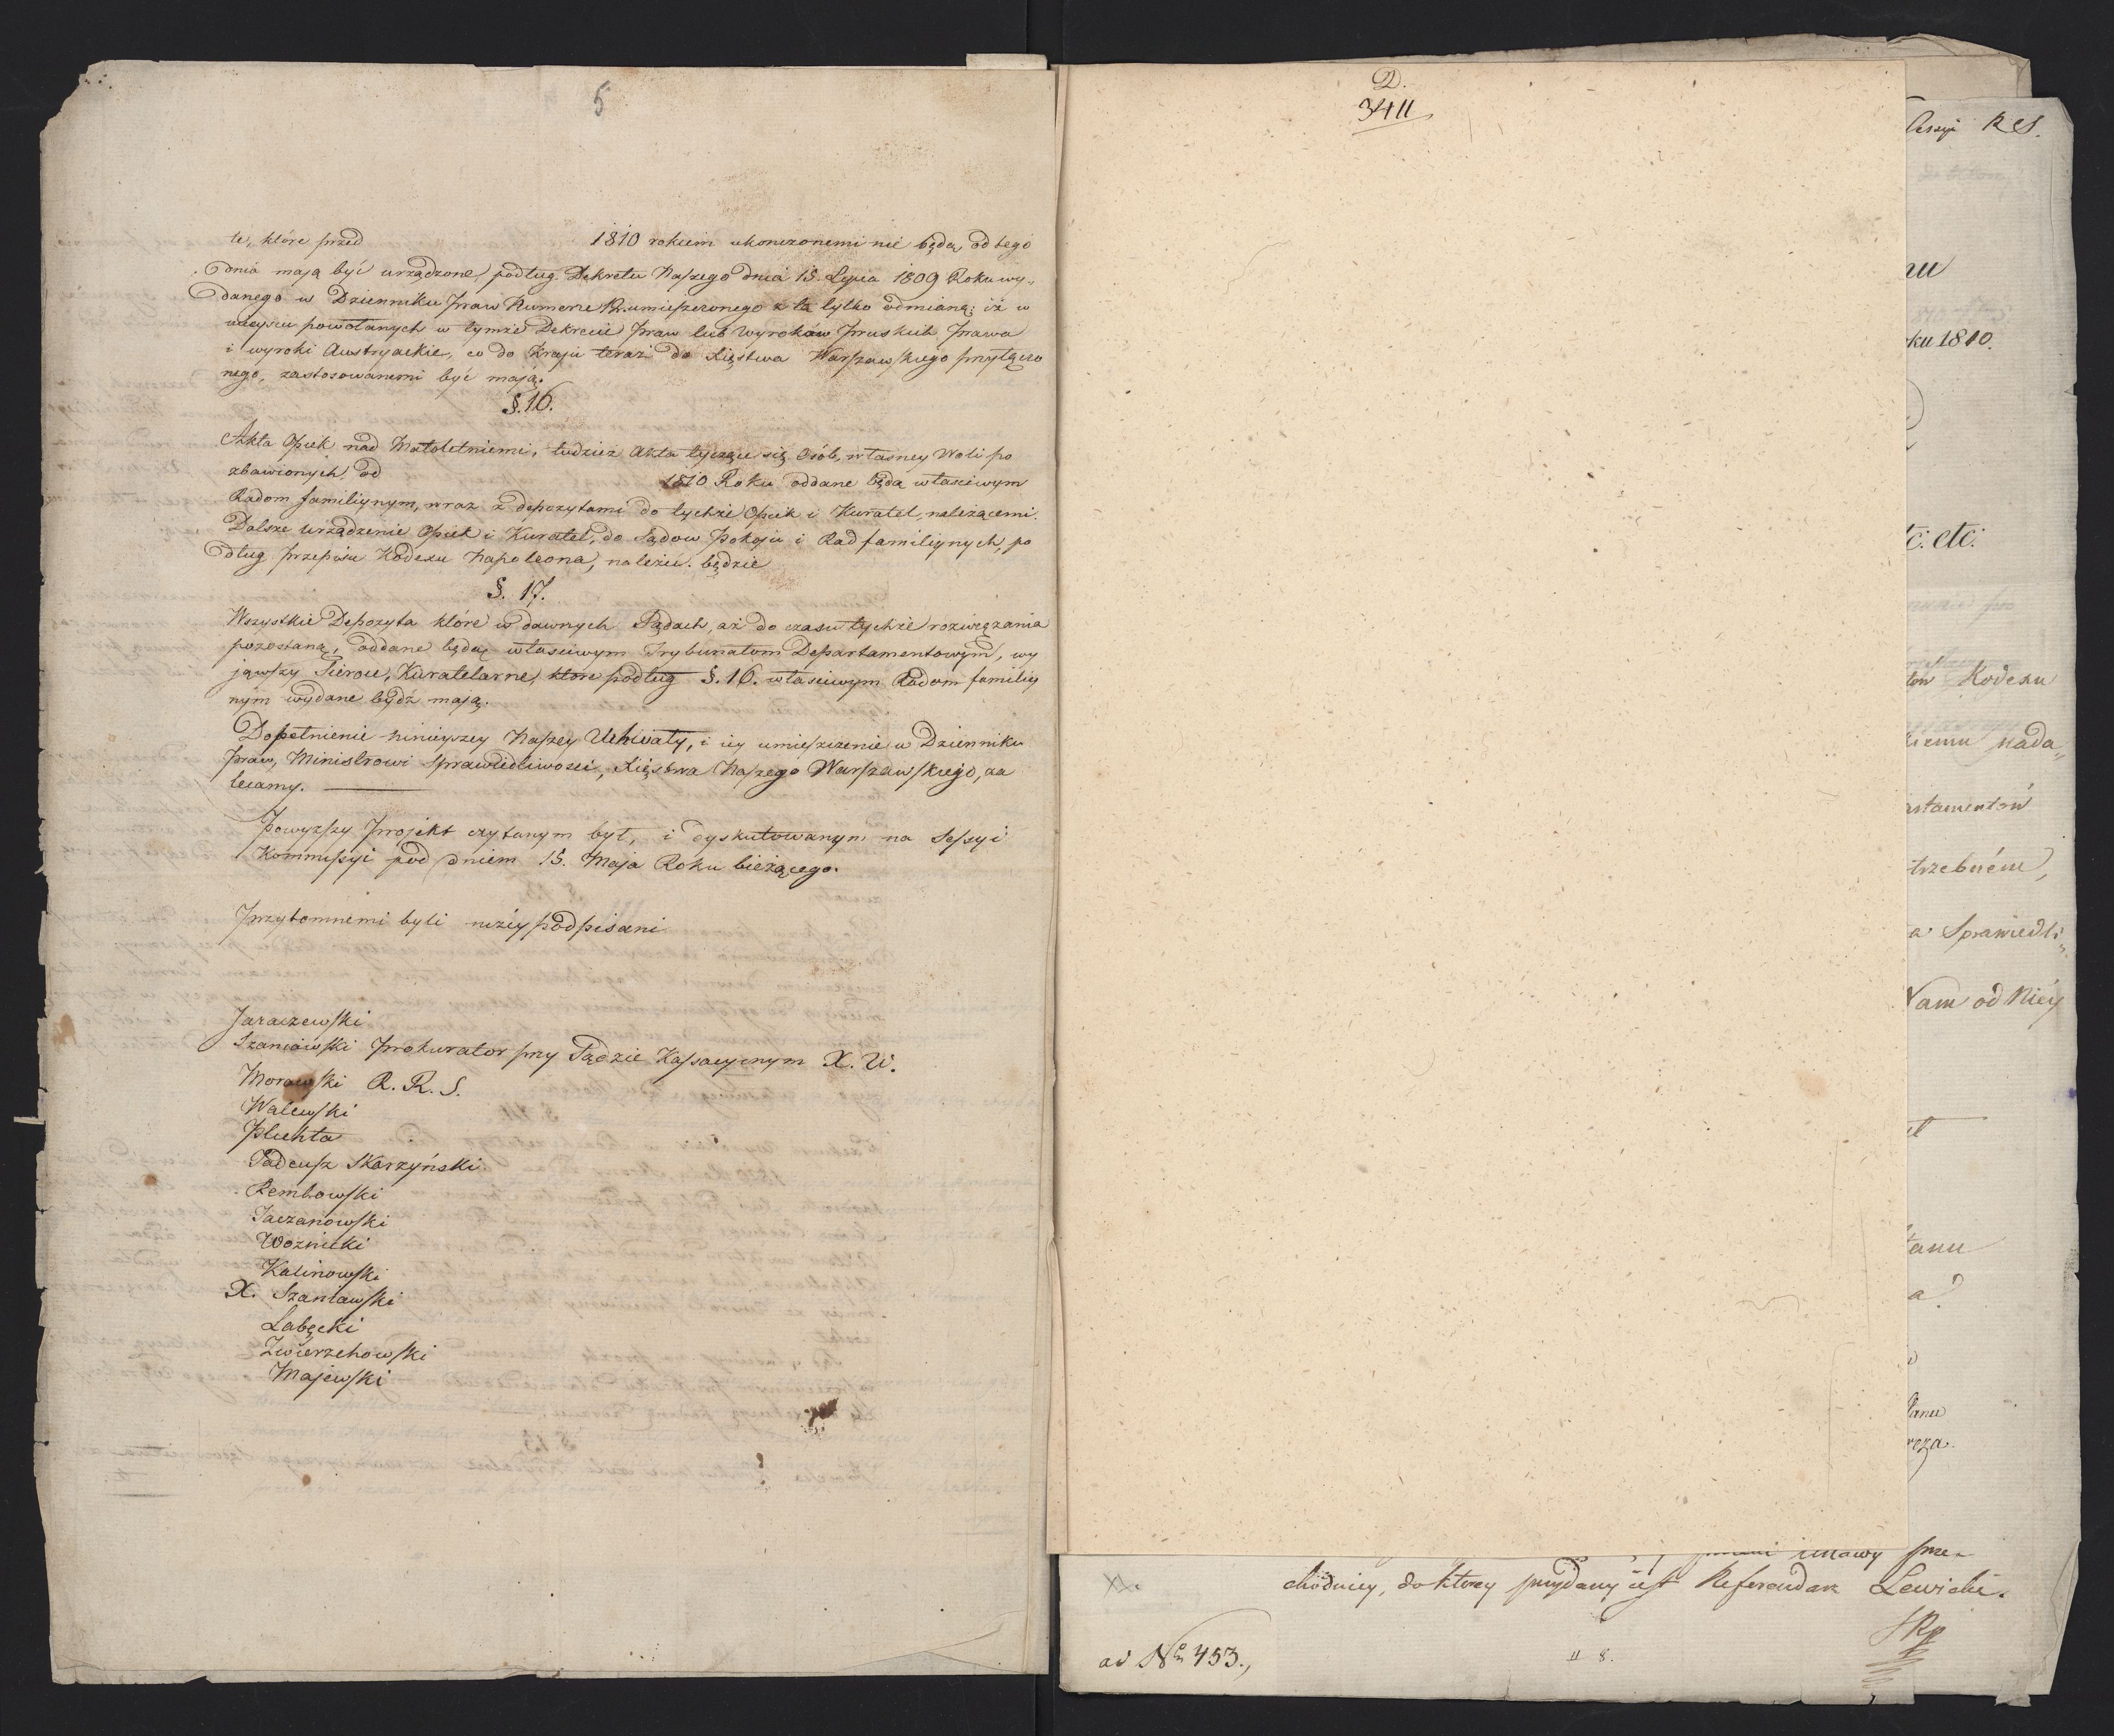 5
te, które przed 1810 rokiem ukonczonemi nie będą, od tego
dnia mają być urządzone podług Dekretu Naszego dnia 18. Lipca 1809 Roku wy-
danego w Dzienniku Praw Numerze umieszczonego z tą tylko odmianą; iż w
mieyscu powołanych w tymże Dekrecie Praw lub Wyroków Pruskich Prawa
i wyroki Austryackie, co do Kraju teraz do Xięstwa Warszawskiego przyłączo
nego, zastosowanemi być mają.
§. 16.
Akta Opiek nad Małoletniemi, tudzież Akta tyczące się Osób, własney Woli po
zbawionych, od 1810 Roku oddane będą właściwym
Radom familiynym, wraz z depozytami do tychże Opiek i Kuratel, należącemi.
Dalsze urządzenie Opiek i Kuratel, do Sądow Pokoju i Rad familiynych, po
dług przepisu Kodexu Napoleona, należeć będzie
§. 17.
Wszystkie Depozyta które w dawnych Sądach, aż do czasu tychże rozwięzania
pozostaną, oddane będą właściwym Trybunałom Departamentowym, wy
jąwszy Sieroce, Kuratelarne, które podług §. 16. właściwym Radom familiy
nym wydane bydź mają.
Dopełnienie ninieyszey Naszey Uchwały, i iey umieszczenie w Dzienniku
Praw, Ministrowi Sprawiedliwości, Xięstwa Naszego Warszawskiego, za
lecamy.
Powyższy Projekt czytanym był, i dyskutowanym na Sessyi
Kommissyi pod dniem 15. Maja Roku bieżącego.
Przytomnemi byli niżéy podpisani
Jaraczewski
Szaniawski Prokurator przy Sądzie Kassacyinym X. W.
Morawski R. R. S.
Walewski
Plichta
Tadeusz Skarzyński
Rembowski
Taczanowski
Woźnicki
Kalinowski
X. Szaniawski
Łabęcki
Zwierzchowski
Majewski
D.
3411
Sessyi R S.
nu
ku 1810.
tc: etc:
tow Kodexu
kiemu nada„
artamentów
trzebném,
a Sprawiedli„
Nam od Niéy
tanu
a
tanu
rza.
ustawy prze-
chodniey, do ktorey przydany iest Referendarz Lewicki.
ad No 453.,
11 8.